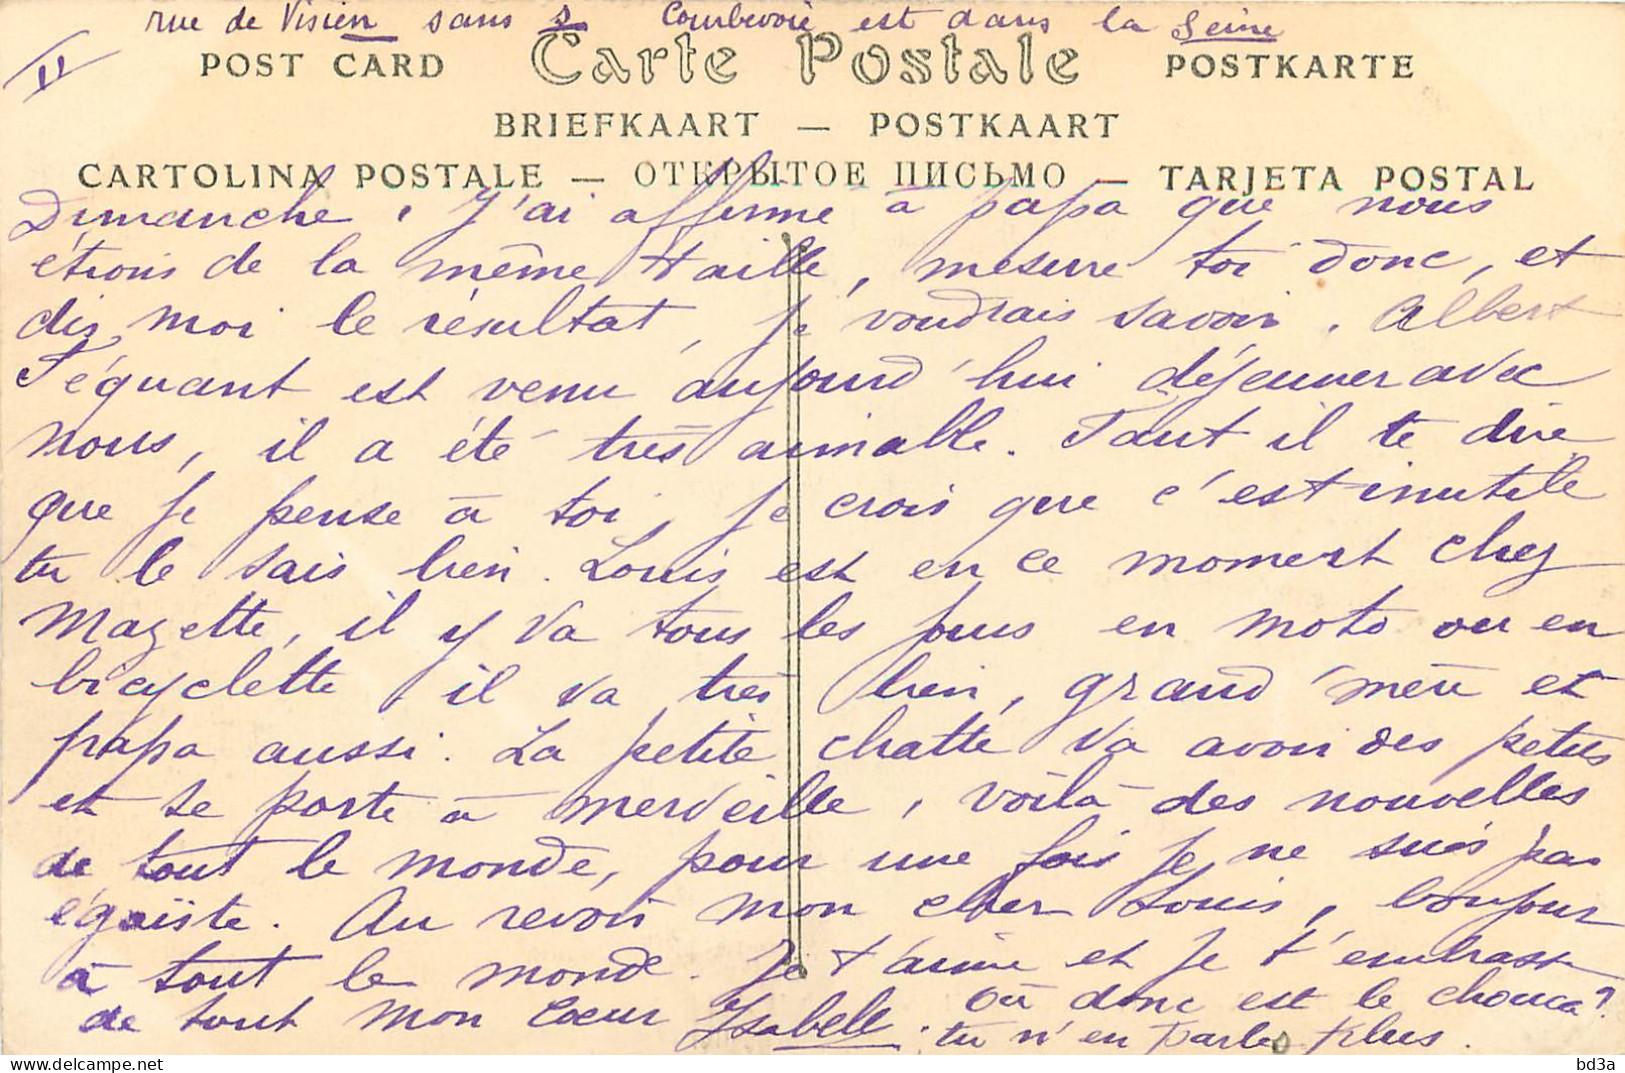 rue de Visien sans s Courbevoie est dans la Seine
II
POST CARD Carte Postale POSTKARTE
BRIEFKAART — POSTKAART
CARTOLINA POSTALE — ОТКРЫТОЕ ПИСЬМО — TARJETA POSTAL
Dimanche, j'ai affirmé à papa que nous
étions de la même taille, mesure toi donc, et
dis moi le résultat, je voudrais savoir. Albert
Téquant est venu aujourd'hui déjeuner avec
nous, il a été très aimable. Faut il te dire
que je pense à toi, je crois que c'est inutile
tu le sais bien. Louis est en ce moment chez
Mazette, il y va tous les jours en moto ou en
bicyclette il va très bien, grand'mère et
papa aussi. La petite chatte va avoir des petits
et se porte à merveille, voilà des nouvelles
de tout le monde, pour une fois je ne suis pas
égoïste. Au revoir mon cher Louis, bonjour
à tout le monde. Je t'aime et je t'embrasse
de tout mon cœur Isabelle. Où donc est le choucas?
tu n'en parles plus.
bd3a